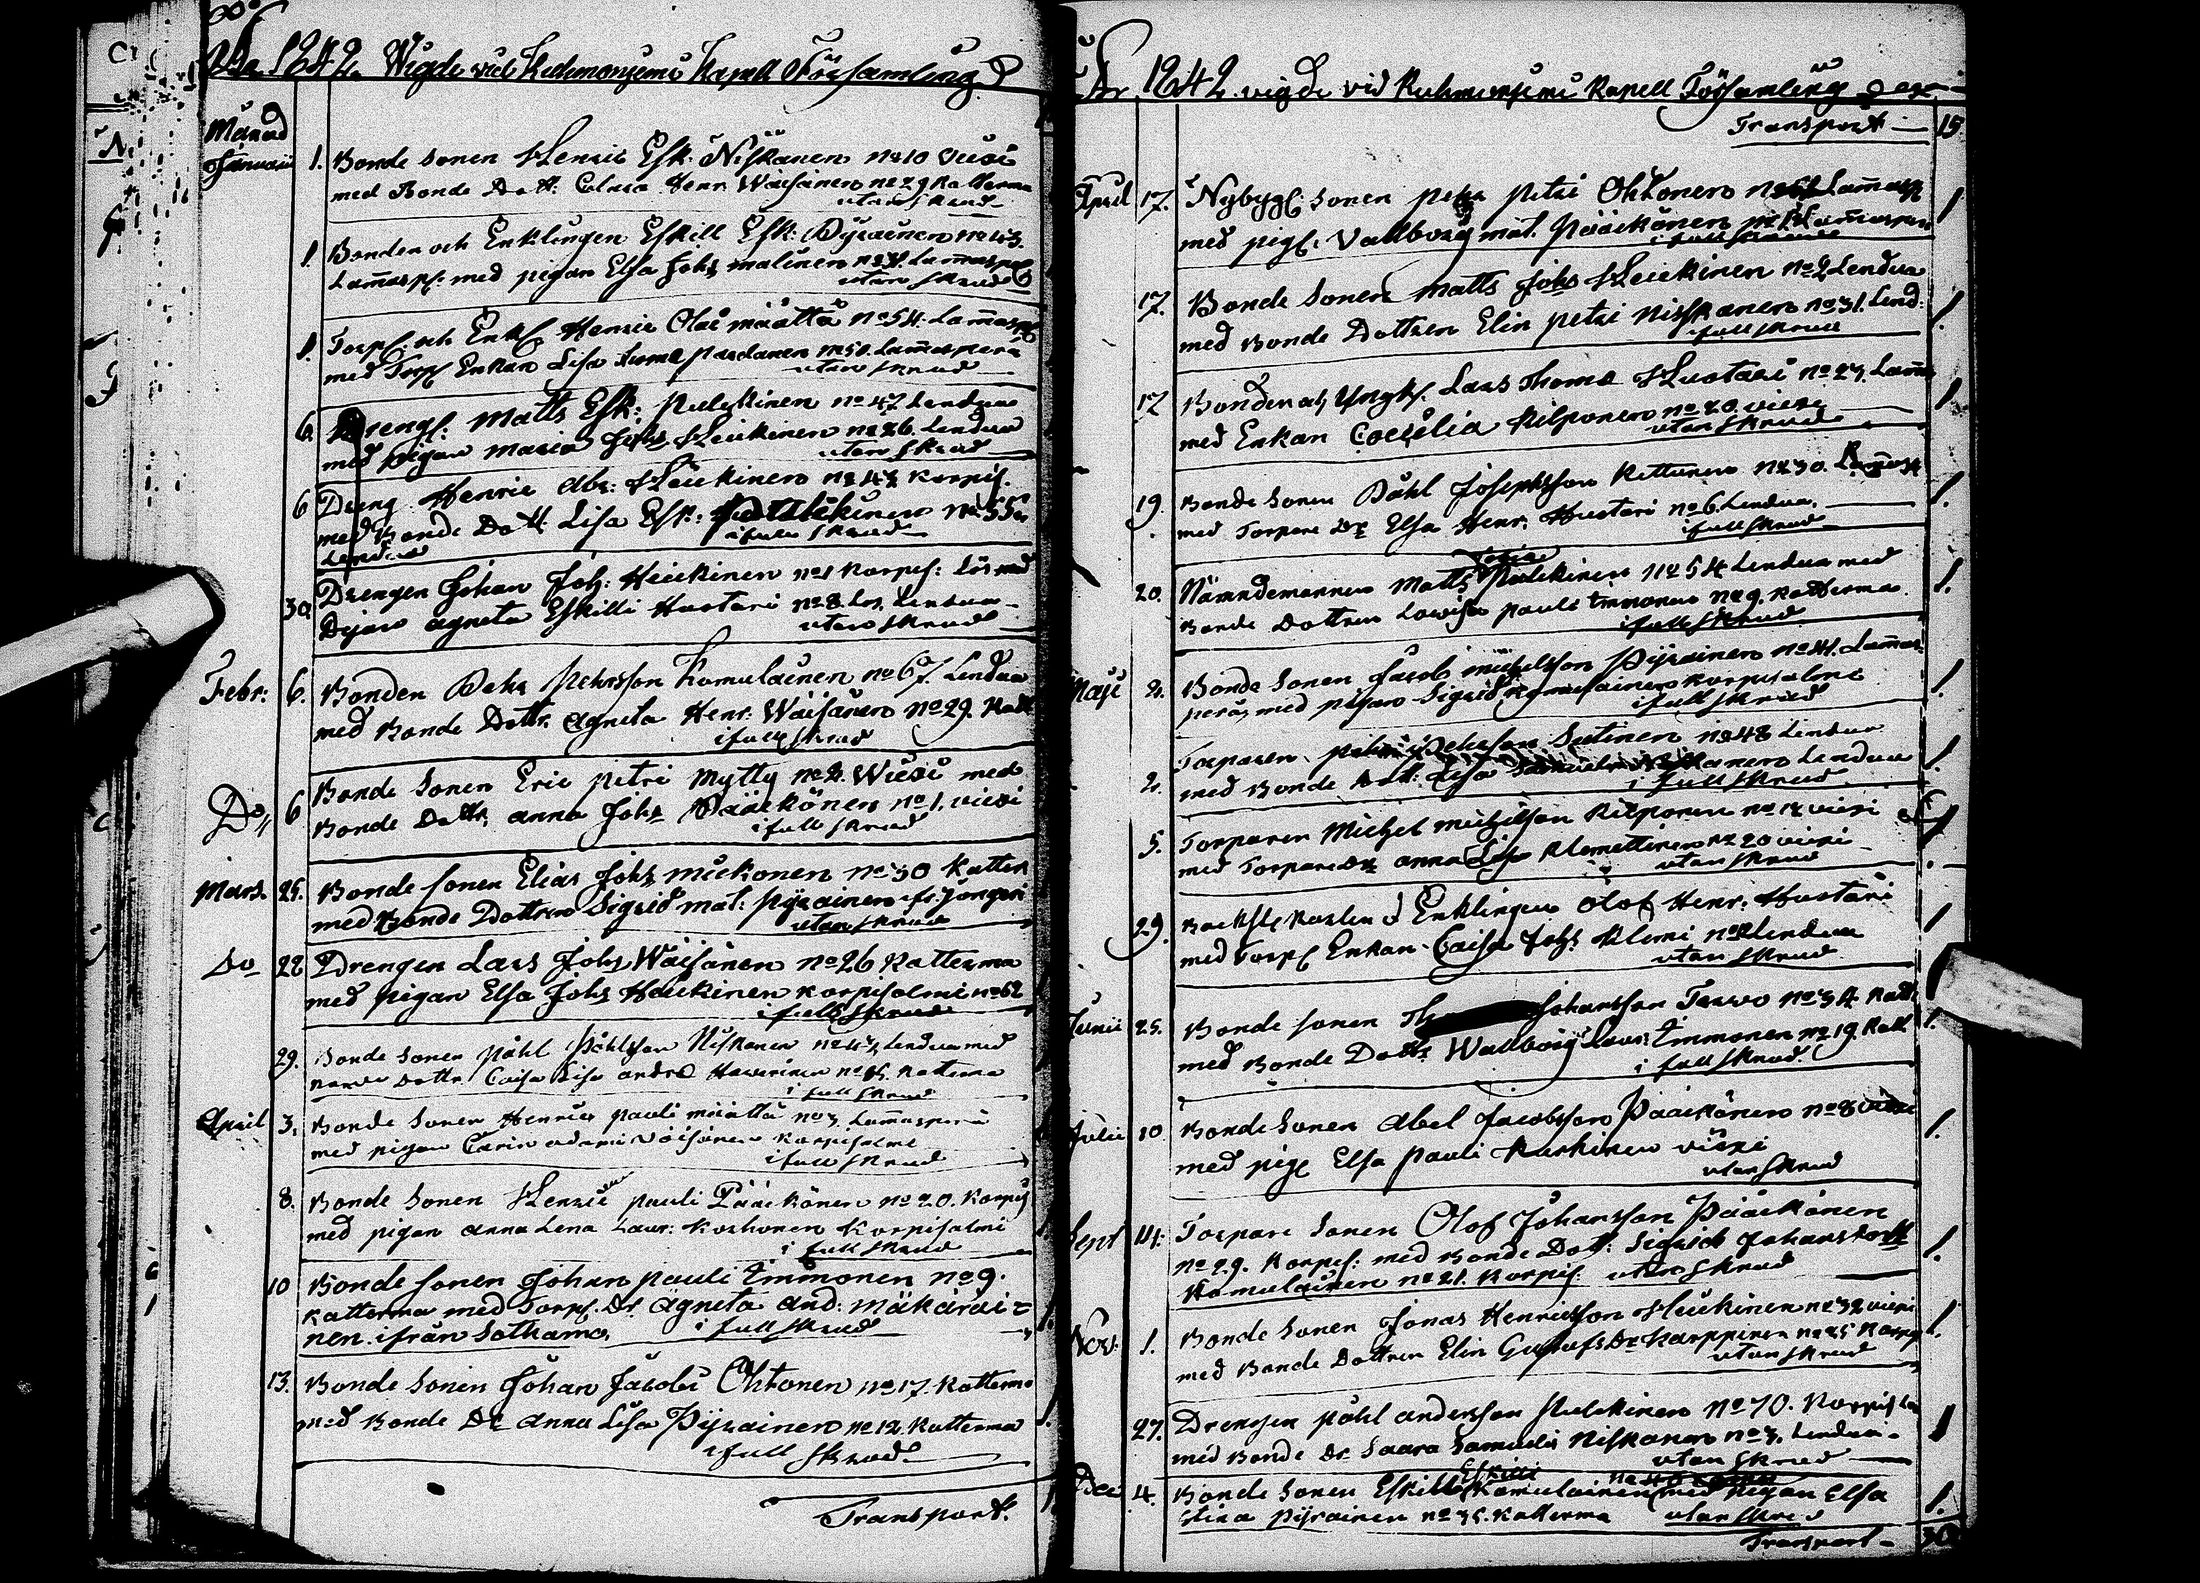 År 1842 Wigde vid Kuhmoniemi Kapell Församling
Månad
Januarii 1. Bonde Sonen Henric Esk: Niskanen No 10 Viexi
med Bonde Dott: Henr. Wäisänen No 29 Katterma
utan skrud
1. Bonden och Enklingen Eskill Esk: Pyrainen No 43.
Lam̃asp: med pigan Elsa Johs Malinen No 31. Lam̃asperä
utan skrud
1. Torp. och Enkl. Henric Olai Määttä No 54. Lam̃asp
med Torp Enkan Lisa No 50. Lam̃asperä
utan skrud
6. Dreng: Matts Esk: Pulckinen No 47 Lendua
med pigan Maria Johs Heickinen No 26. Lendua
utan skrud
6 Dreng Henric Abr: Heickinen No 43 Korpis.
med Bonde Dott Lisa Esk: Pulckinen No 55.
Lendua i full skrud
30 Drengen Johan Joh: Heickinen No 1 Korpis:
Pigan Agneta Eskilli Huotari No 8 Lendua
utan skrud
Febr: 6. Bonden Pehr Pehrsson Komulainen No 67 Lendua
med Bonde Dottr. Agneta Henr: Wäisänen No 29. Katt
i full skrud
Do 6 Bonde Sonen Eric Petri Mytty No 2. Wiexi med
Bonde Dottr. Anna Johs Pääckönen No 1. Viexi
i full skrud
Mars. 25. Bonde Sonen Elias Johs Mickonen No 30 Katter
med Bonde Dottren Sigrid Mat: Pyrainen
utan skrud
Do 28 Drengen Lars Johs Wäisänen No 26 Katterma
med pigan Elsa Johs Heickinen Korpisalmi No 62
i full skrud
29. Bonde Sonen Påhl Påhlsson Niskanen No 43 Lendua med
Bonde Dottr. Caisa Lisa And: Haverinen No 15. Katterma
i full skrud
April 3. Bonde Sonen Henric Pauli Määttä No 3 Lam̃asperä
med pigan Carin Adami Väisänen Korpisalmi
i full skrud
8. Bonde Sonen Henric Pauli Pääckönen No 20. Korpis
med pigan Anna Lena Laur: Korhonen Korpisalmi
i full skrud
10 Bonde Sonen Johan Pauli Immonen No 9.
Katterma med Torp. Dr Agneta And: Mäkäräi=
nen ifrån Sotkamo, i full skrud
13. Bonde Sonen Johan Jacobi Ohtonen No 17. Katterma
med Bonde Dr Anna Lisa Pyrainen No 12 Katterma
i full skrud
Transport.
År 1842 vigde vid Kuhmoniemi Kapell Församling
Transport 15
April 17. Nybygg: Sonen Pehr Petri Ohtonen Lam̃asp 1
med pig. Vallborg Mat. Pääckönen Lam̃asperä
i full skrud
17. Bonde Sonen Matts Johs Heickinen No 2 Lendua
med Bonde Dottren Elin Petri Niskanen No 31. Lend: 1.
i full skrud
17 Bonden och Yngk. Lars Thoma Huotari No 23. Lam̃a 1
med Enkan Coecelia Kilponen No 20. Viexi
utan skrud
19. Bonde Sonen Påhl Josephsson Kettunen No 30. Lam̃asp 1.
med Torpare Dr Elsa Henr. Huotari No 6. Lendua.
i full skrud
20. Nämndemannen Matts Pulckinen No 54 Lendua med 1.
Bonde Dottren Lowisa Pauli Immonen No 9. Katterma.
i full skrud
Maji 2. Bonde Sonen Jacob Michelsson Pyrainen No 41. Lam̃as:
perä, med pigan Sigrid Komulainen Korpisalmi 1.
i full skrud
2. Torparen Pehrsson Sutinen No 48 Lendua 1.
med Bonde Dott: Lisa Samuels Niskanen Lendua
i full skrud
5. Torparen Michel Michelsson Kilponen No 12 Viexi 1
med Torpare Dr Anna Lisa Klemettinen No 20 Viexi
utan skrud
29. Enklingen Olof Henr: Huotari 1
med Torp Enkan Caisa Johs Klemi Lendua
utan skrud
Junii 25. Bonde Sonen Johansson Tervo No 34 Katt
med Bonde Dottr Wallborg Laur: Immonen No 19. Katt 1.
i full skrud.
Julii 10 Bonde Sonen Abel Jacobsson Pääckönen No 8 Viexi 1.
med pig Elsa Pauli Karhinen Viexi
utan skrud
Sept 14. Torpare Sonen Olof Johansson Pääckönen
No 29. Korpis: med Bonde Dott: Sigrid Johansdott 1.
Komulainen No 21. Korpis: utan skrud
Nov: 1. Bonde Sonen Jonas Henricsson Heickinen No 32 Viexi 1.
med Bonde Dottren Elin Gustafs Dr Karppinen No 25 Korpi
utan skrud
27. Drengen Påhl Andersson Pulckinen No 70. Korpis 1
med Bonde Dr Saara Samuelis Niskanen No 3. Lendua.
utan skrud
Dec 4. Bonde Sonen Eskill Eskilli Komulainen No 40 med pigan Elsa 1.
Stina Pyrainen No 35. Katterma utan skrud
Transport 30